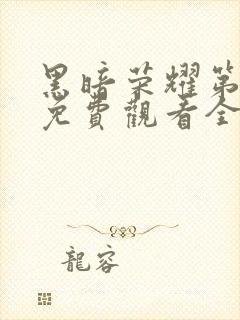 黑暗荣耀第
免費觀看全
龍容